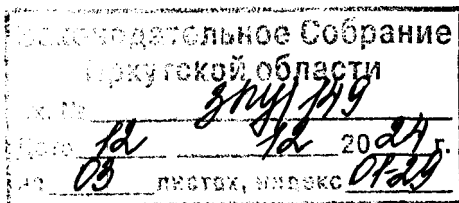 Законодательное Собрание
Иркутской области
Вх. №
Дата 12 12 2024 г.
на 03 листах, индекс 01-29